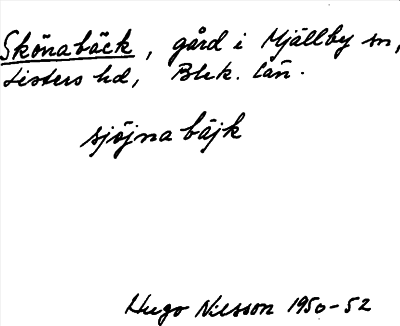 Skönabäck, gård i Mjällby sn,
Listers hd, Blek. län.
sjöjna bäjk
Hugo Nilsson 1950-52